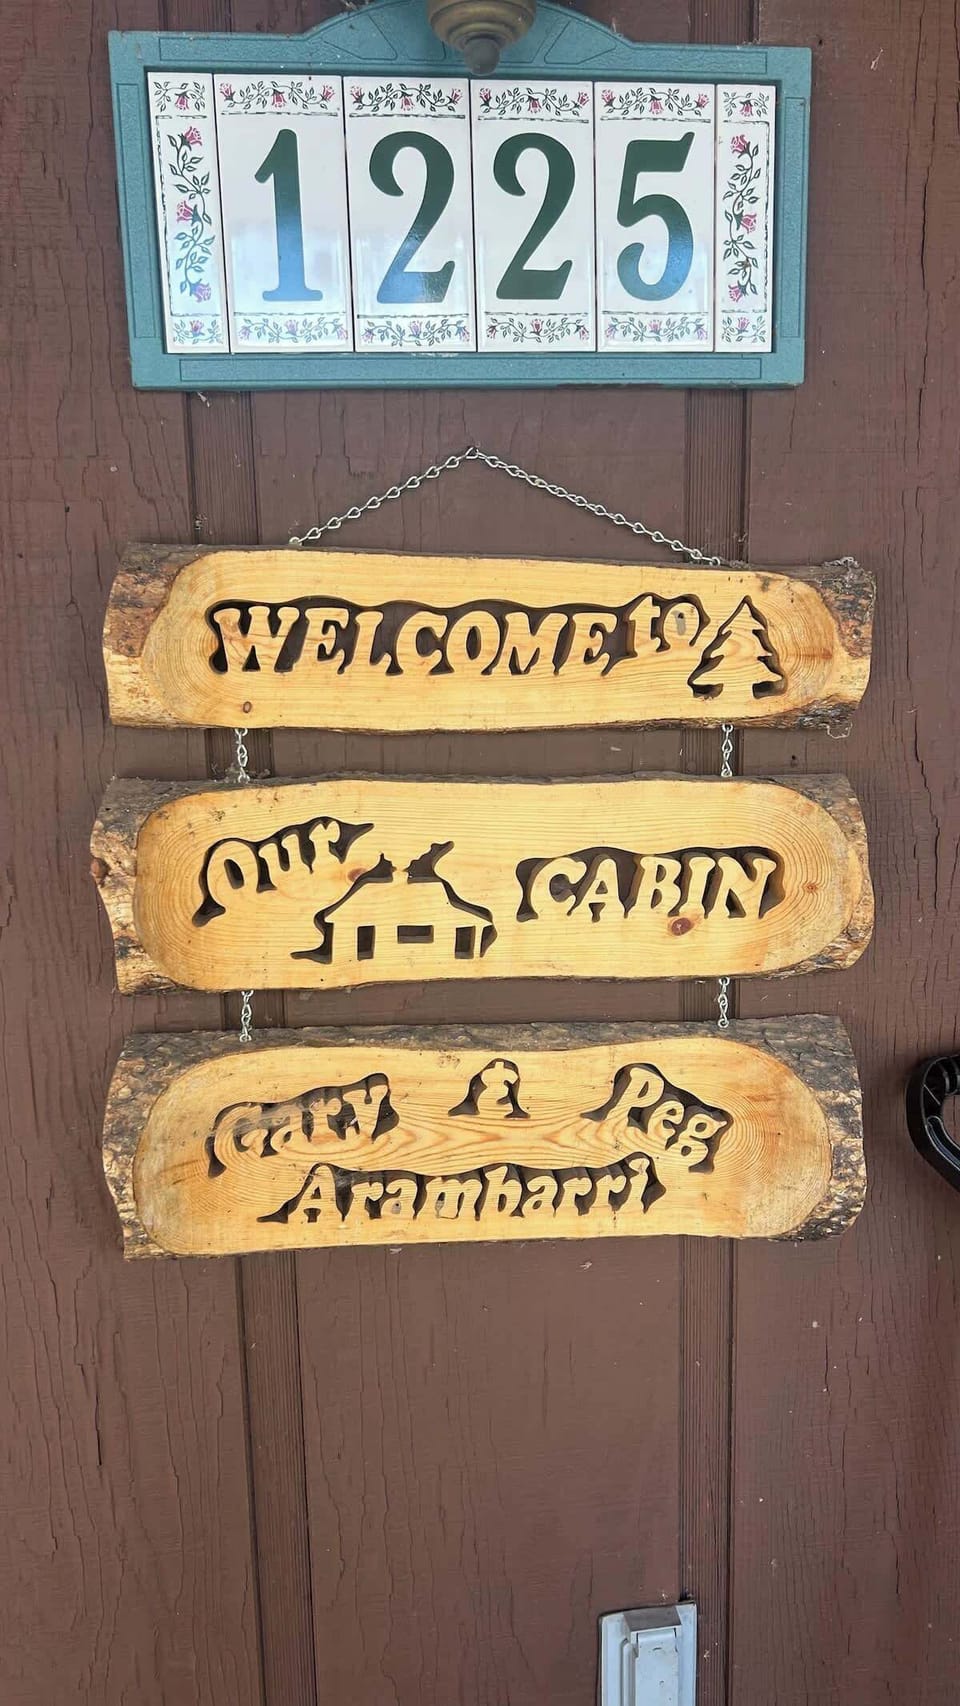 1225
WELCOME to
Our CABIN
Gary & Peg
Arambarri